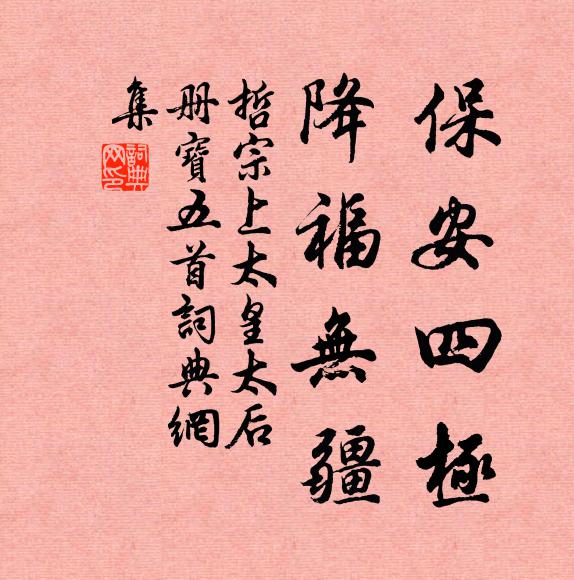 保安四極
降福無疆
哲宗上太皇太后
冊寶五首詞典網
集
詞典網印